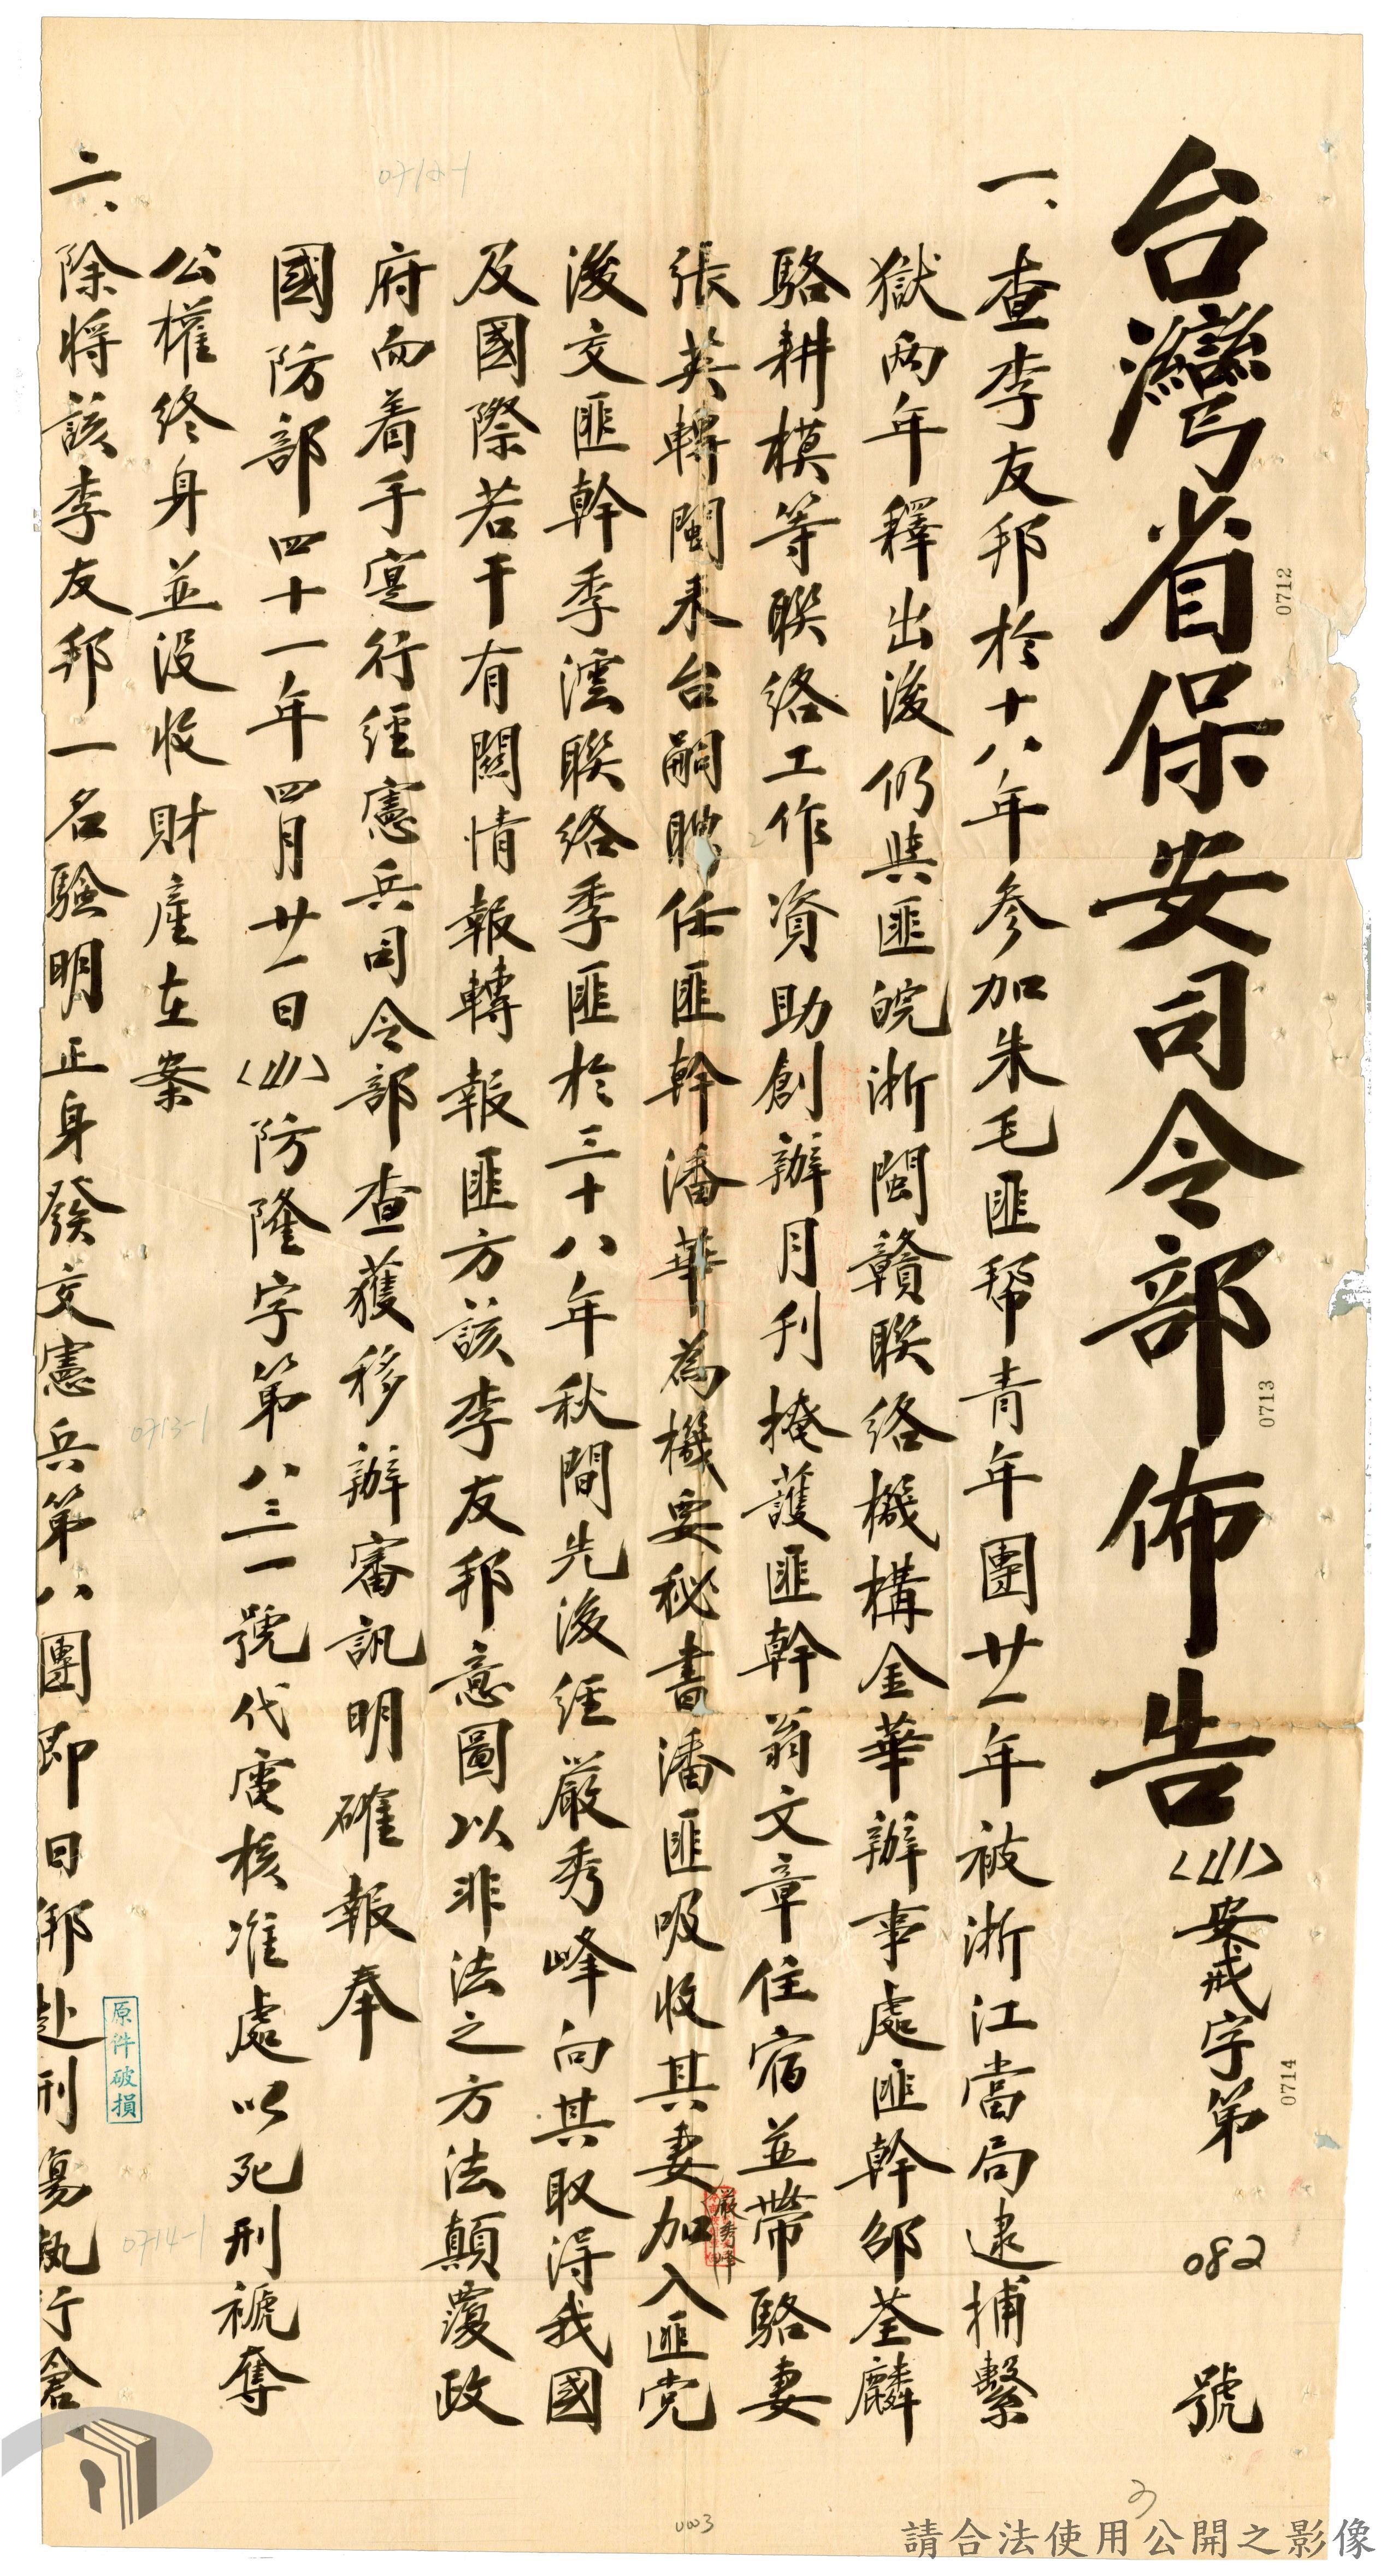 台灣省保安司令部佈告 (41)安戒字第 082 號
一、查李友邦於十八年參加朱毛匪幫青年團廿一年被浙江當局逮捕繫
獄兩年釋出後仍與匪皖浙閩贛聯絡機構金華辦事處匪幹邵荃麟
駱耕模等聯絡工作資助創辦月刊掩護匪幹翁文章住宿並帶駱妻
張英轉閩來台嗣聘任匪幹潘華為機要秘書潘匪吸收其妻嚴秀峰加入匪党
後交匪幹季澐聯絡季匪於三十八年秋間先後經嚴秀峰向其取得我國
及國際若干有關情報轉報匪方該李友邦意圖以非法之方法顛覆政
府而着手寔行經憲兵司令部查獲移辦審訊明確報奉
國防部四十一年四月廿一日(41)防隆字第八三一號代電核准處以死刑褫奪
公權終身並没收財產在案
二、除將該李友邦一名驗明正身發交憲兵第八團即日綁赴刑場執行倉
原件破損
0712
0713
0714
0712-1
0713-1
0714-1
0003
請合法使用公開之影像